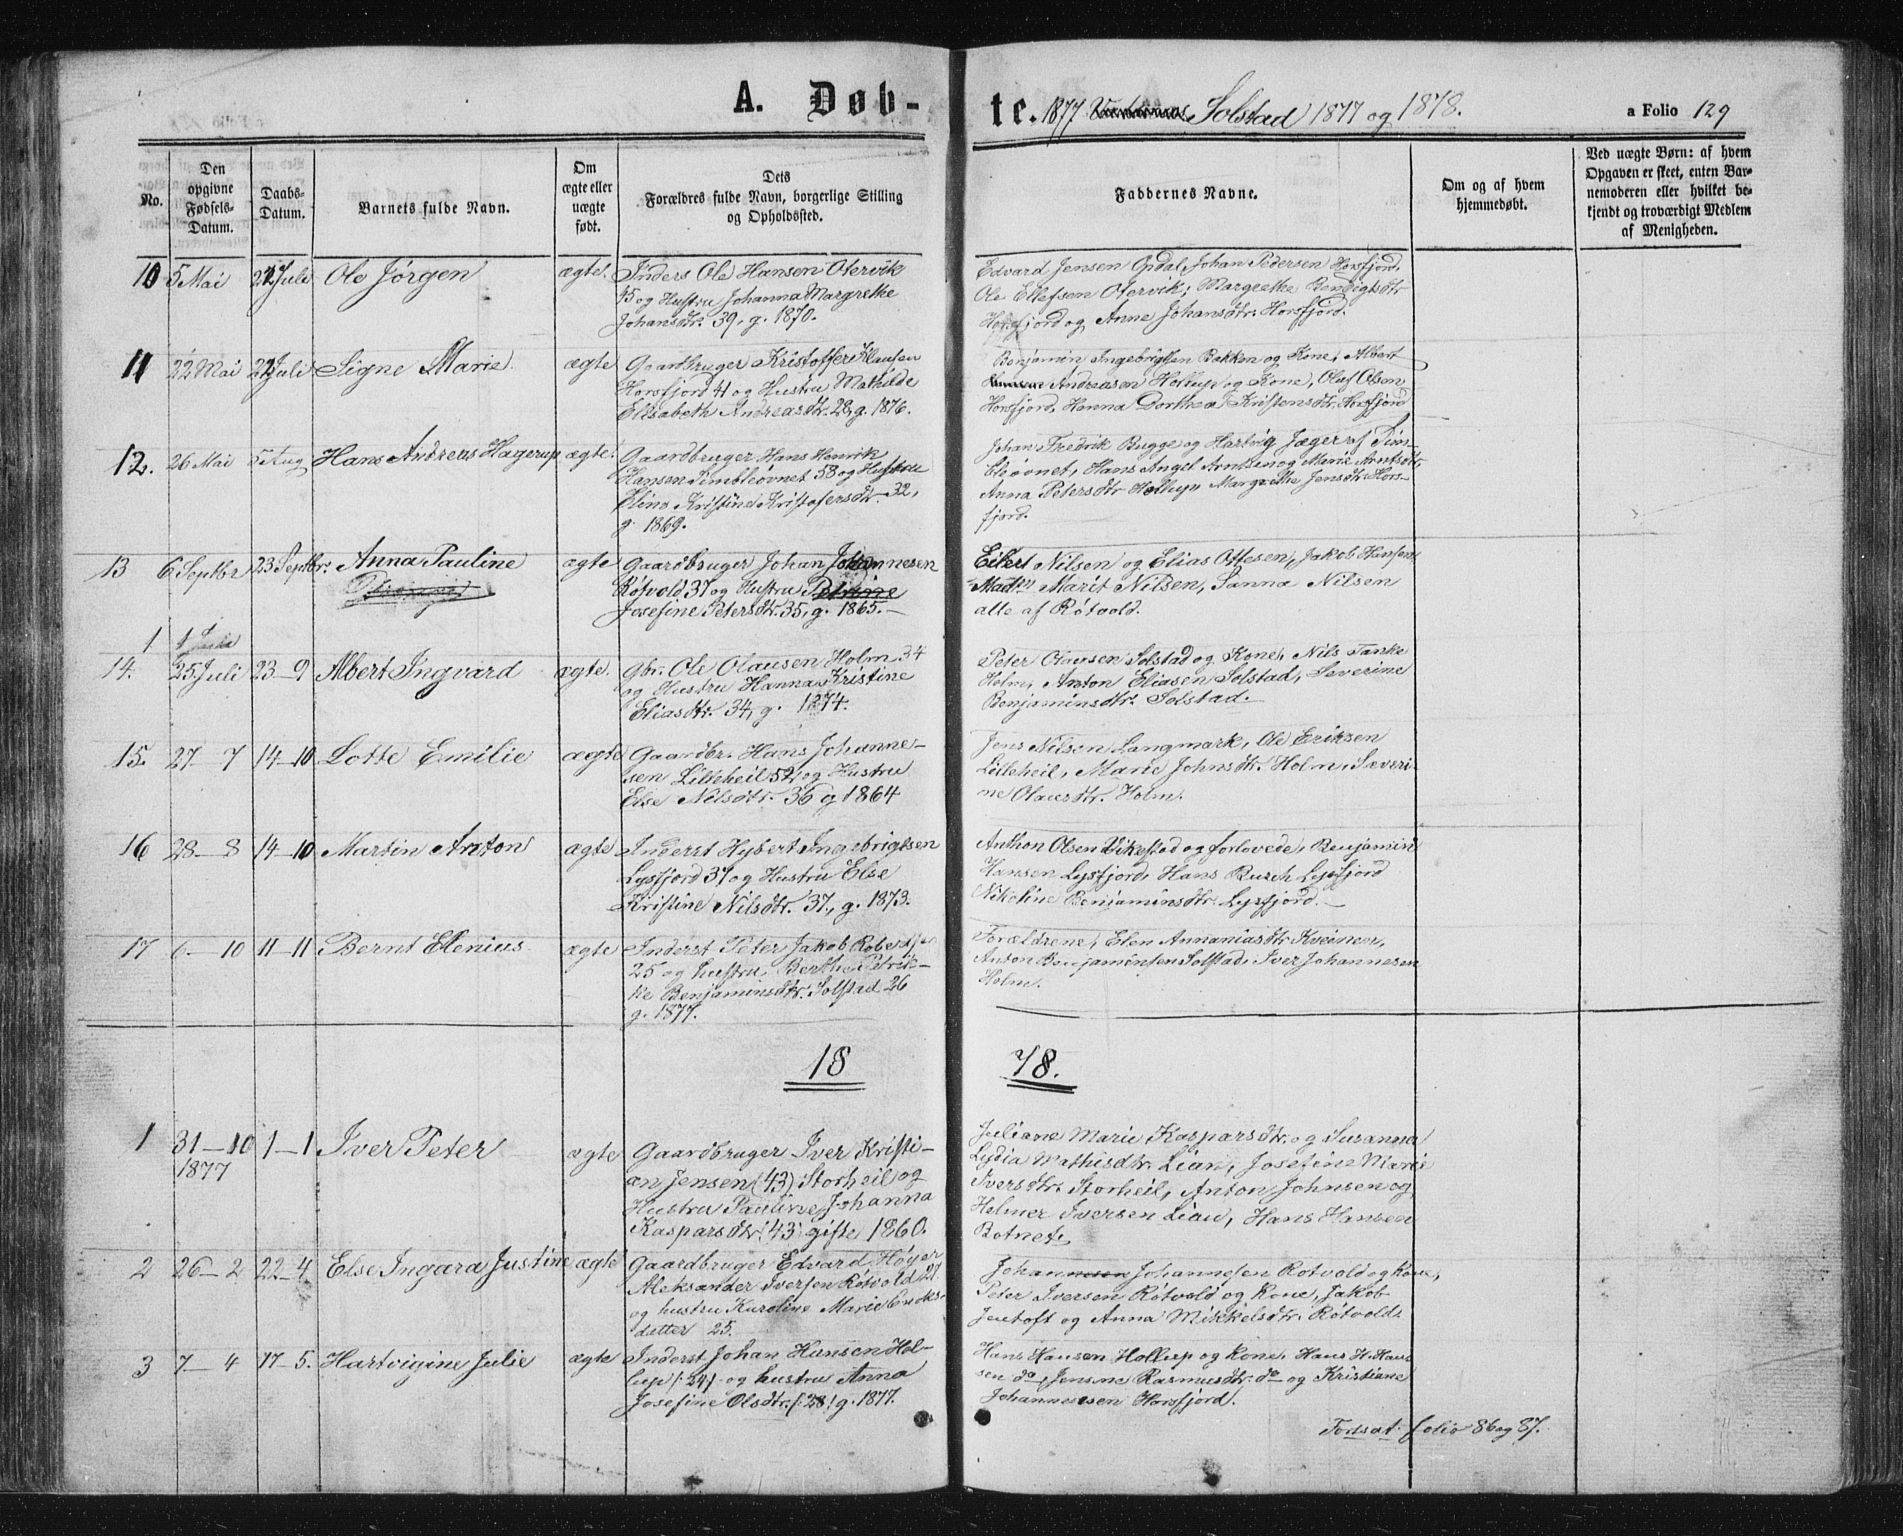 A. Døb-
te. 1877 Solstad 1877 og 1878.
a Folio 129
No.
Den opgivne Fødsels-Datum.
Daabs-Datum.
Barnets fulde Navn.
Om ægte eller uægte født.
Dets Forældres fulde Navn, borgerlige Stilling og Opholdssted.
Faddernes Navne.
Om og af hvem hjemmedøbt.
Ved uægte Børn: af hvem Opgaven er skeet, enten Barnemoderen eller hvilket bekjendt og troværdigt Medlem af Menigheden.
10 5 Mai 22 Juli Ole Jørgen ægte. Inders Ole Hansen Otervik
og Hustru Johanna Margrethe
Johansdtr. 39, g. 1870.
Edvard Jensen Opdal, Johan Pedersen Horsfjord,
Ole Ellefsen Otervik, Margrethe Bendigtsdtr
Horsfjord og Anne Johansdtr. Horsfjord.
11 22 Mai 22 Juli Signe Marie. ægte Gaardbruger Kristoffer Klausen
Horsfjord 41 og Hustru Mathilde
Elisabeth Andreasdtr. 28, g. 1876.
Benjamin Ingebrigtsen Bakken og Kone, Albert
Andreasen Hollup og Kone, Oluf Olsen
Horsfjord, Hanna Dorthea Kristensdtr. Horsfjord
12. 26 Mai 5 Aug Hans Andreas Hagerup ægte. Gaardbruger Hans Henrik
Hansen Simbleøvnet 58 og Hustru
Eline Kristine Kristofersdtr. 32,
g. 1869.
Johan Fredrik Bugge og Hartvig Jæger af Sim-
bleøvnet, Hans Angel Arntsen og Marie Arntsdtr,
Anna Petersdtr Hollup, Margrethe Jensdtr. Hors-
fjord.
13 6 Septbr 23 Septbr. Anna Pauline ægte Gaardbruger Johan Johannesen
Røtvold 37 og Hustru Petrine
Josefine Petersdtr. 35, g. 1865.
Eilert Nilsen og Elias Ottesen, Jakob Hansen,
Marit Nilsen, Sanna Nilsen
alle af Røtvold.
1
14. 25 Juli 23-9 Albert Ingvard ægte. Gbr. Ole Olausen Holm 34
og Hustru Hanna Kristine
Eliasdtr. 34, g. 1874.
Peter Olausen Solstad og Kone, Nils Tanke
Holm, Anton Eliasen Solstad, Severine
Benjaminsdtr. Solstad.
15. 27-7 14-10 Lotte Emilie ægte Gaardbr. Hans Johanne-
sen Lilleheil 52 og Hustru
Else Nilsdtr. 36 g 1864
Jens Nilsen Langmark, Ole Eriksen
Lilleheil, Marie Johnsdtr. Holm, Severi-
ne Olausdtr. Holm.
16 28-8 14-10 Martin Anton ægte Inderst Hybert Ingebrigtsen
Lysfjord 37 og Hustru Else
Kristine Nilsdtr. 37, g. 1873.
Anthon Olsen Vikestad og forlovede, Benjamin
Hansen Lysfjord, Hans Busch Lysfjord
Nikoline Benjaminsdtr. Lysfjord.
17 6-10 11-11 Bernt Elenius. ægte Inderst Peter Jakob Robertsen
25 og hustru Berthe Petrik-
ke Benjaminsdtr. Solstad 26
g. 1877.
Forældrene, Elen Annaniasdtr
Anton Benjaminsen Solstad, Iver Johannesen
Holm.
18 78.
1 31-10 1-1 Iver Peter ægte Gaardbruger Iver Kristi-
1877
an Jensen (43) Storheil og
Hustru Pauline Johanna
Kasparsdtr. (43) gifte 1860.
Juliane Marie Kasparsdtr. og Susanna
Lydia Mathisdtr. Lian, Josefine Marie
Iversdtr. Storheil, Anton Johnsen og
Helmer Iversen Lian, Hans Hansen
Botnet.
2 26-2 22-4 Else Ingara Justine ægte Gaardbruger Edvard Høyer
Aleksander Iversen Røtvold 27
og hustru Karoline Marie
datter 25.
Johannesen Johannesen Røtvold og Kone,
Peter Iversen Røtvold og Kone, Jakob
Jentoft og Anna Mikkelsdtr. Røtvold.
3 7-4 17-5. Hartvigine Julie ægte Inderst Johan Hansen Hol-
lup /:24/ og hustru Anna
Josefine Olsdtr. /:28/ g. 1877.
Hans Hansen Hollup og Kone, Hans H. Han-
sen do, Jensine Rasmusdtr. do og Kristiane
Johannesen Horsfjord.
Fortsat folio 86 og 87.